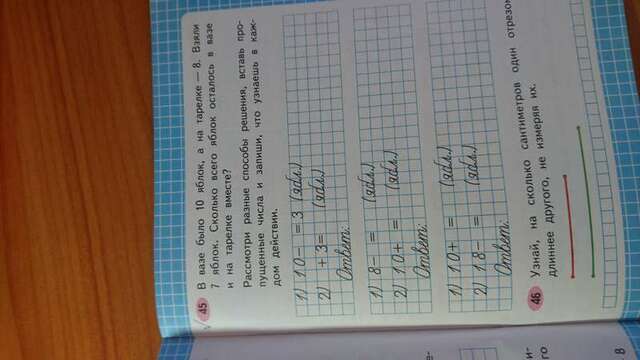 45 В вазе было 10 яблок, а на тарелке — 8. Взяли
7 яблок. Сколько всего яблок осталось в вазе
и на тарелке вместе?
Рассмотри разные способы решения, вставь про-
пущенные числа и запиши, что узнаёшь в каж-
дом действии.
1) 10 - = 3 (ябл.)
2) + 3 = (ябл.)
Ответ:
1) 8 - = (ябл.)
2) 10 + = (ябл.)
Ответ:
1) 10 + = (ябл.)
2) 18 - = (ябл.)
Ответ:
46 Узнай, на сколько сантиметров один отрезок
длиннее другого, не измеряя их.
8